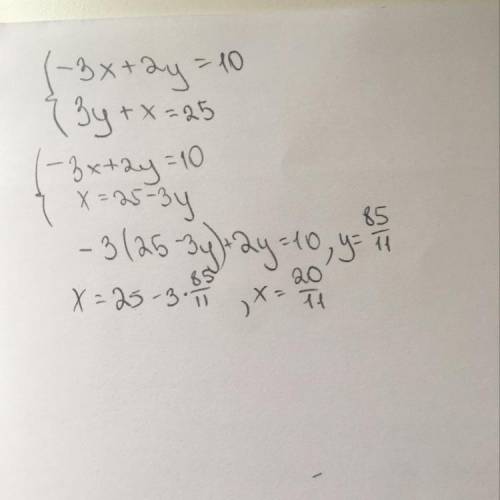 -3x+2y=10
3y+x=25
-3x+2y=10
x=25-3y
-3(25-3y)+2y=10, y=85/11
x=25-3·85/11, x=20/11